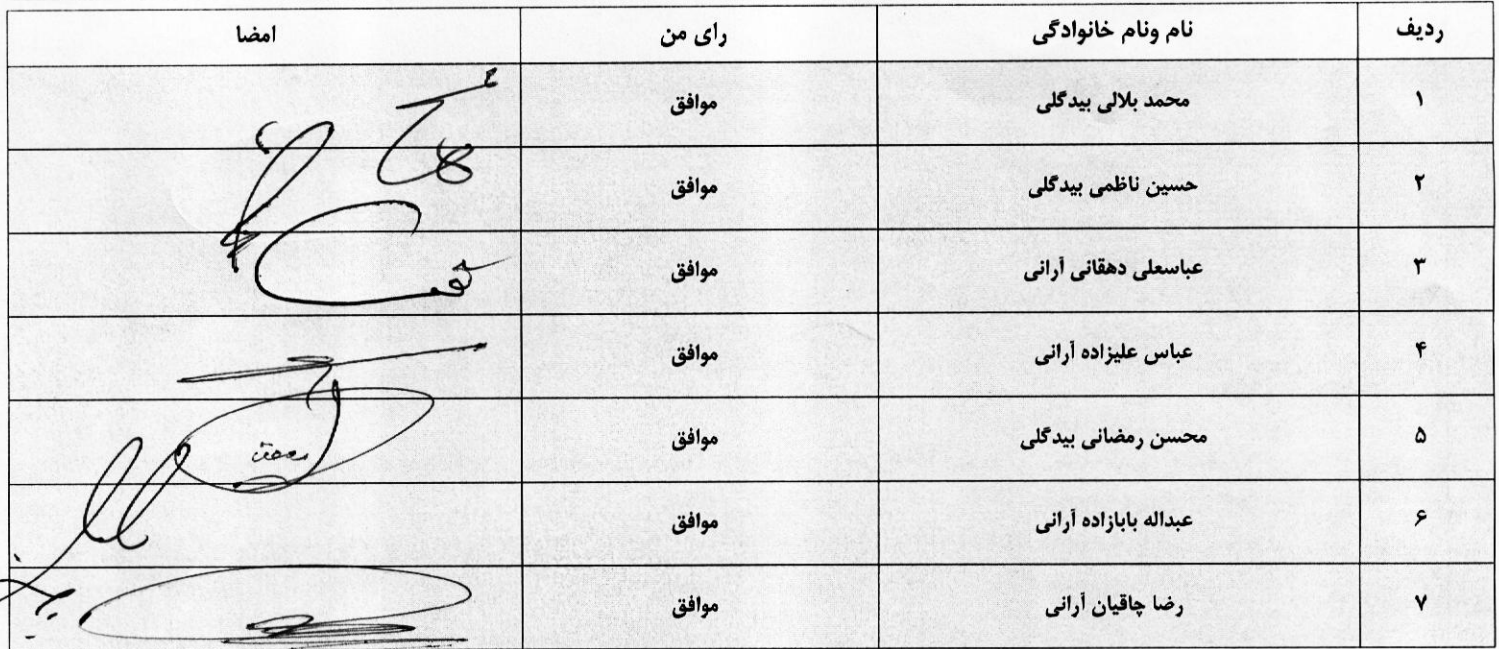 ردیف نام ونام خانوادگی رای من امضا
۱ محمد بلالی بیدگلی موافق
۲ حسین ناظمی بیدگلی موافق
۳ عباسعلی دهقانی آرانی موافق
۴ عباس علیزاده آرانی موافق
۵ محسن رمضانی بیدگلی موافق
۶ عبداله بابازاده آرانی موافق
۷ رضا چاقیان آرانی موافق